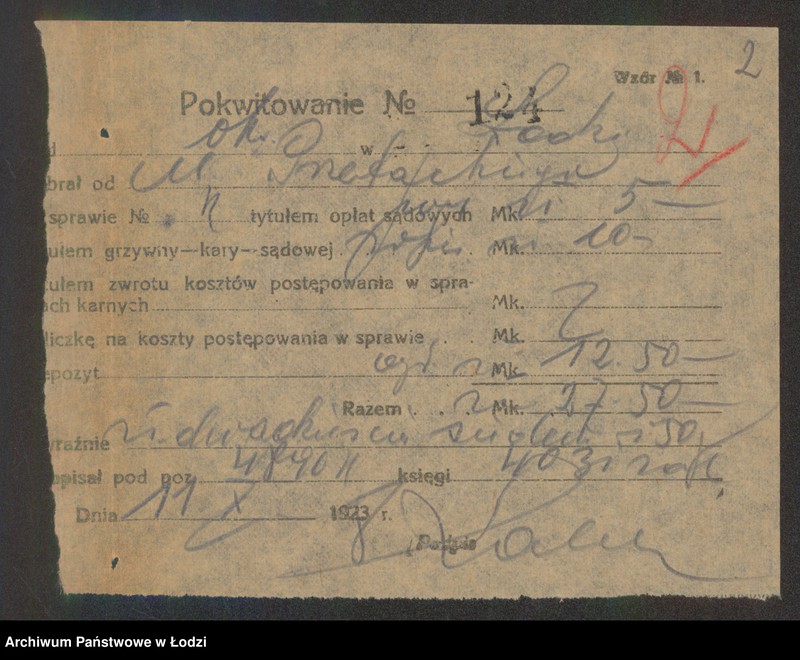 2
Wzór № 1.
Pokwitowanie № 124
okr. w Łodzi
brał od M.
sprawie № tytułem opłat sądowych Mk. zł 5—
ułem grzywny—kary—sądowej Mk. zł 10—
ułem zwrotu kosztów postępowania w spra-
ach karnych Mk.
liczkę na koszty postępowania w sprawie Mk.
epozyt ogł. zł Mk. 12.50—
Razem zł Mk. 27.50—
yraźnie zł dwadzieścia siedem i 50
pisał pod poz. księgi
Dnia 11 X 1923 r.
Podpis
Archiwum Państwowe w Łodzi